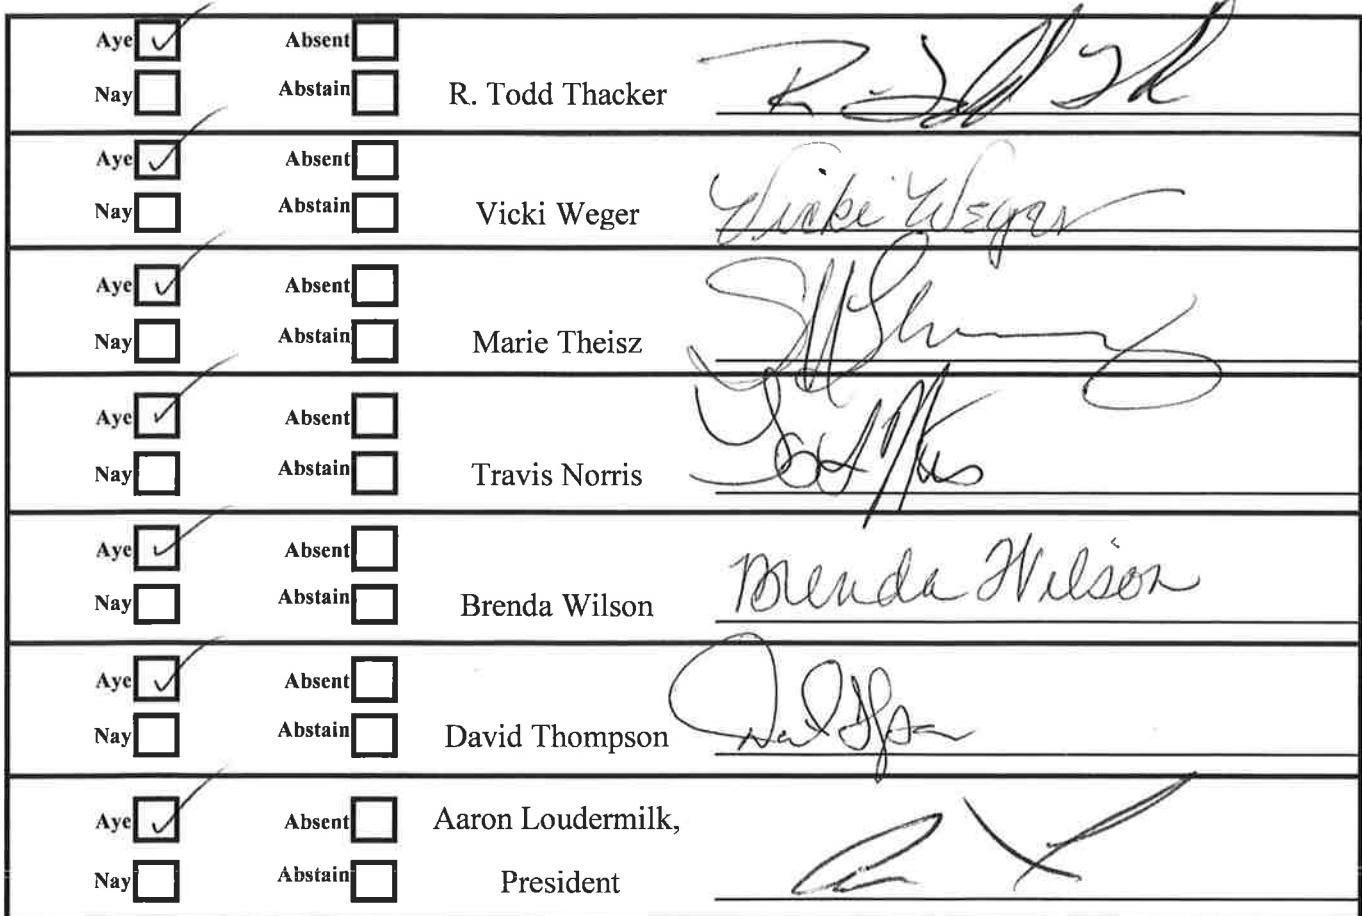 Aye ✓ Absent
Nay Abstain R. Todd Thacker
Aye ✓ Absent
Nay Abstain Vicki Weger Vicki Weger
Aye ✓ Absent
Nay Abstain Marie Theisz
Aye ✓ Absent
Nay Abstain Travis Norris
Aye ✓ Absent
Nay Abstain Brenda Wilson Brenda Wilson
Aye ✓ Absent
Nay Abstain David Thompson
Aye ✓ Absent Aaron Loudermilk,
Nay Abstain President